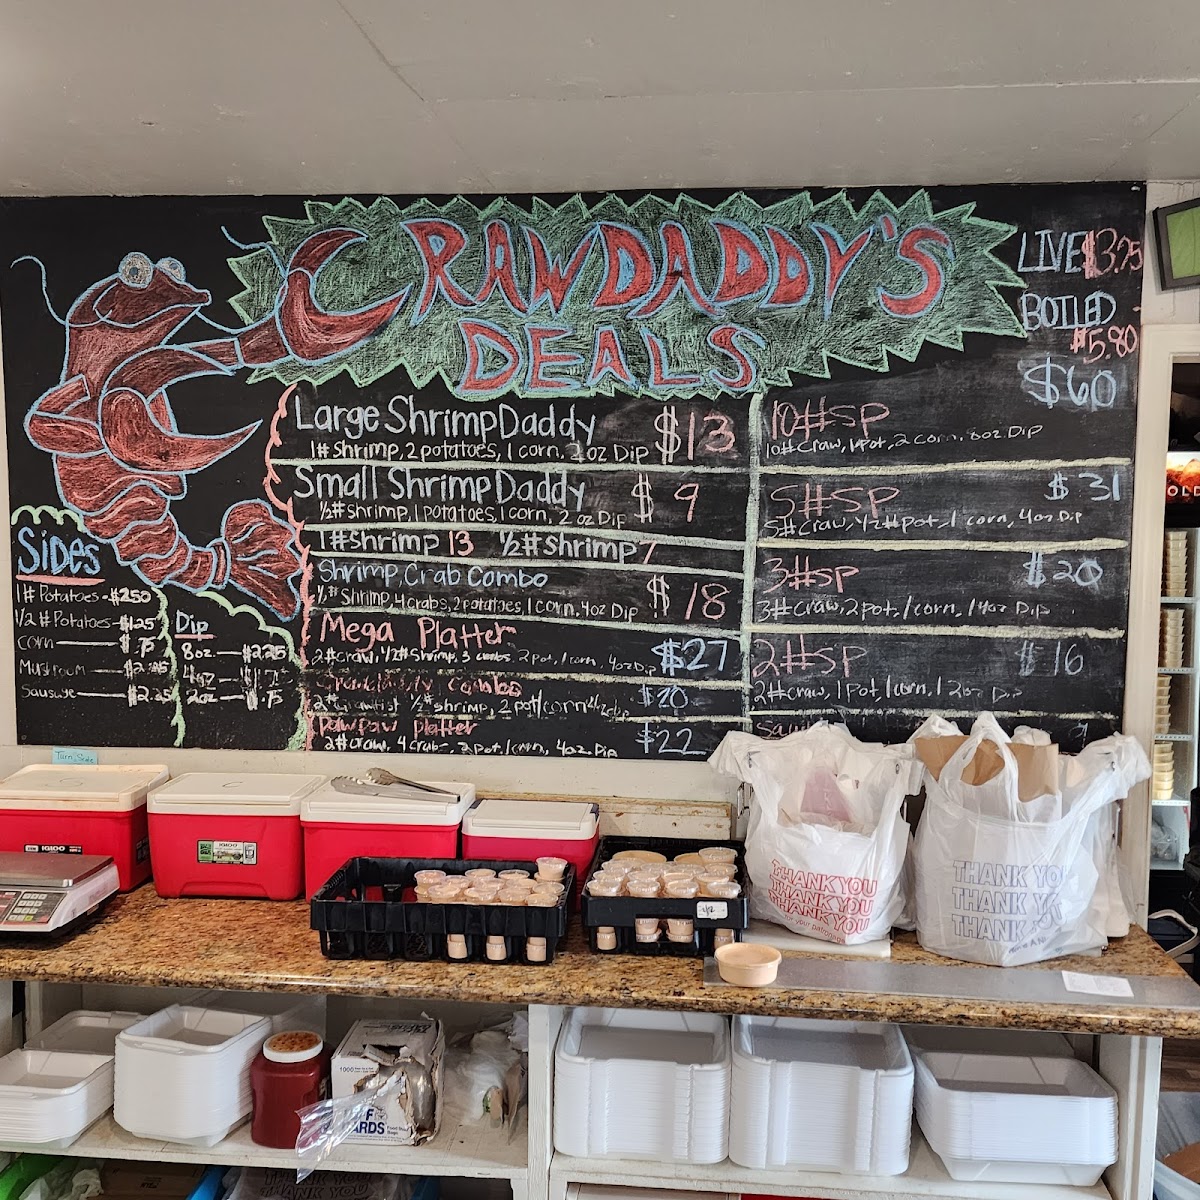 CRAWDADDY'S
DEALS
LIVE $3.25
BOILED
$5.80
Large ShrimpDaddy $13
1# shrimp, 2 potatoes, 1 corn, 2 oz Dip
Small ShrimpDaddy $9
½# shrimp, 1 potatoes, 1 corn, 2 oz Dip
1# shrimp 13 ½# shrimp 7
Shrimp, Crab Combo $18
Shrimp, 4 crabs, 2 potatoes, 1 corn, 4oz Dip
Mega Platter $27
2# craw, ½# shrimp, 3 crabs, 2 pot, 1 corn, 4oz Dip
combo $20
½# shrimp, 2 pot/corn
PawPaw platter $22
2# craw, 4 crab, 2 pot, 1 corn, 4oz. Dip
$60
10#SP
10# craw, 1# Pot, 2 corn, 8oz Dip
5#SP $31
5# craw, ½# pot, 1 corn, 4oz Dip
3#SP $20
3# craw, 2 pot, 1 corn, 1 4oz Dip
2#SP $16
2# craw, 1 Pot, 1 corn, 1 2oz Dip
9
Sides
1# Potatoes - $2.50
1/2 # Potatoes - $1.25
corn - $.75
Mushroom - $2.25
Sausage - $2.25
Dip
8oz. - $2.25
4oz
2oz - $.75
Turn Scale
IGLOO
IGLOO
1/2
THANK YOU
THANK YOU
THANK YOU
for your patronage
THANK YOU
THANK YOU
THANK YOU
OLD
1000